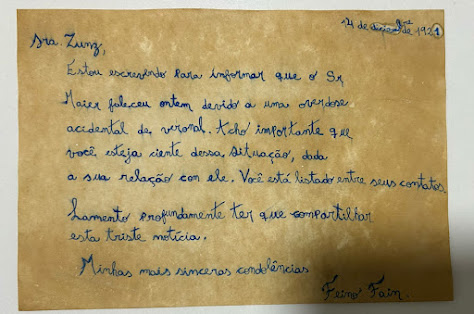 14 de de 1921
Sra. Zunz,
Estou escrevendo para informar que o Sr
Maier faleceu ontem devido a uma overdose
acidental de veronal. Acho importante que
você esteja ciente dessa situação, dada
a sua relação com ele. Você está listado entre seus contatos.
Lamento profundamente ter que compartilhar
esta triste notícia.
Minhas mais sinceras condolências
Feino Fain.